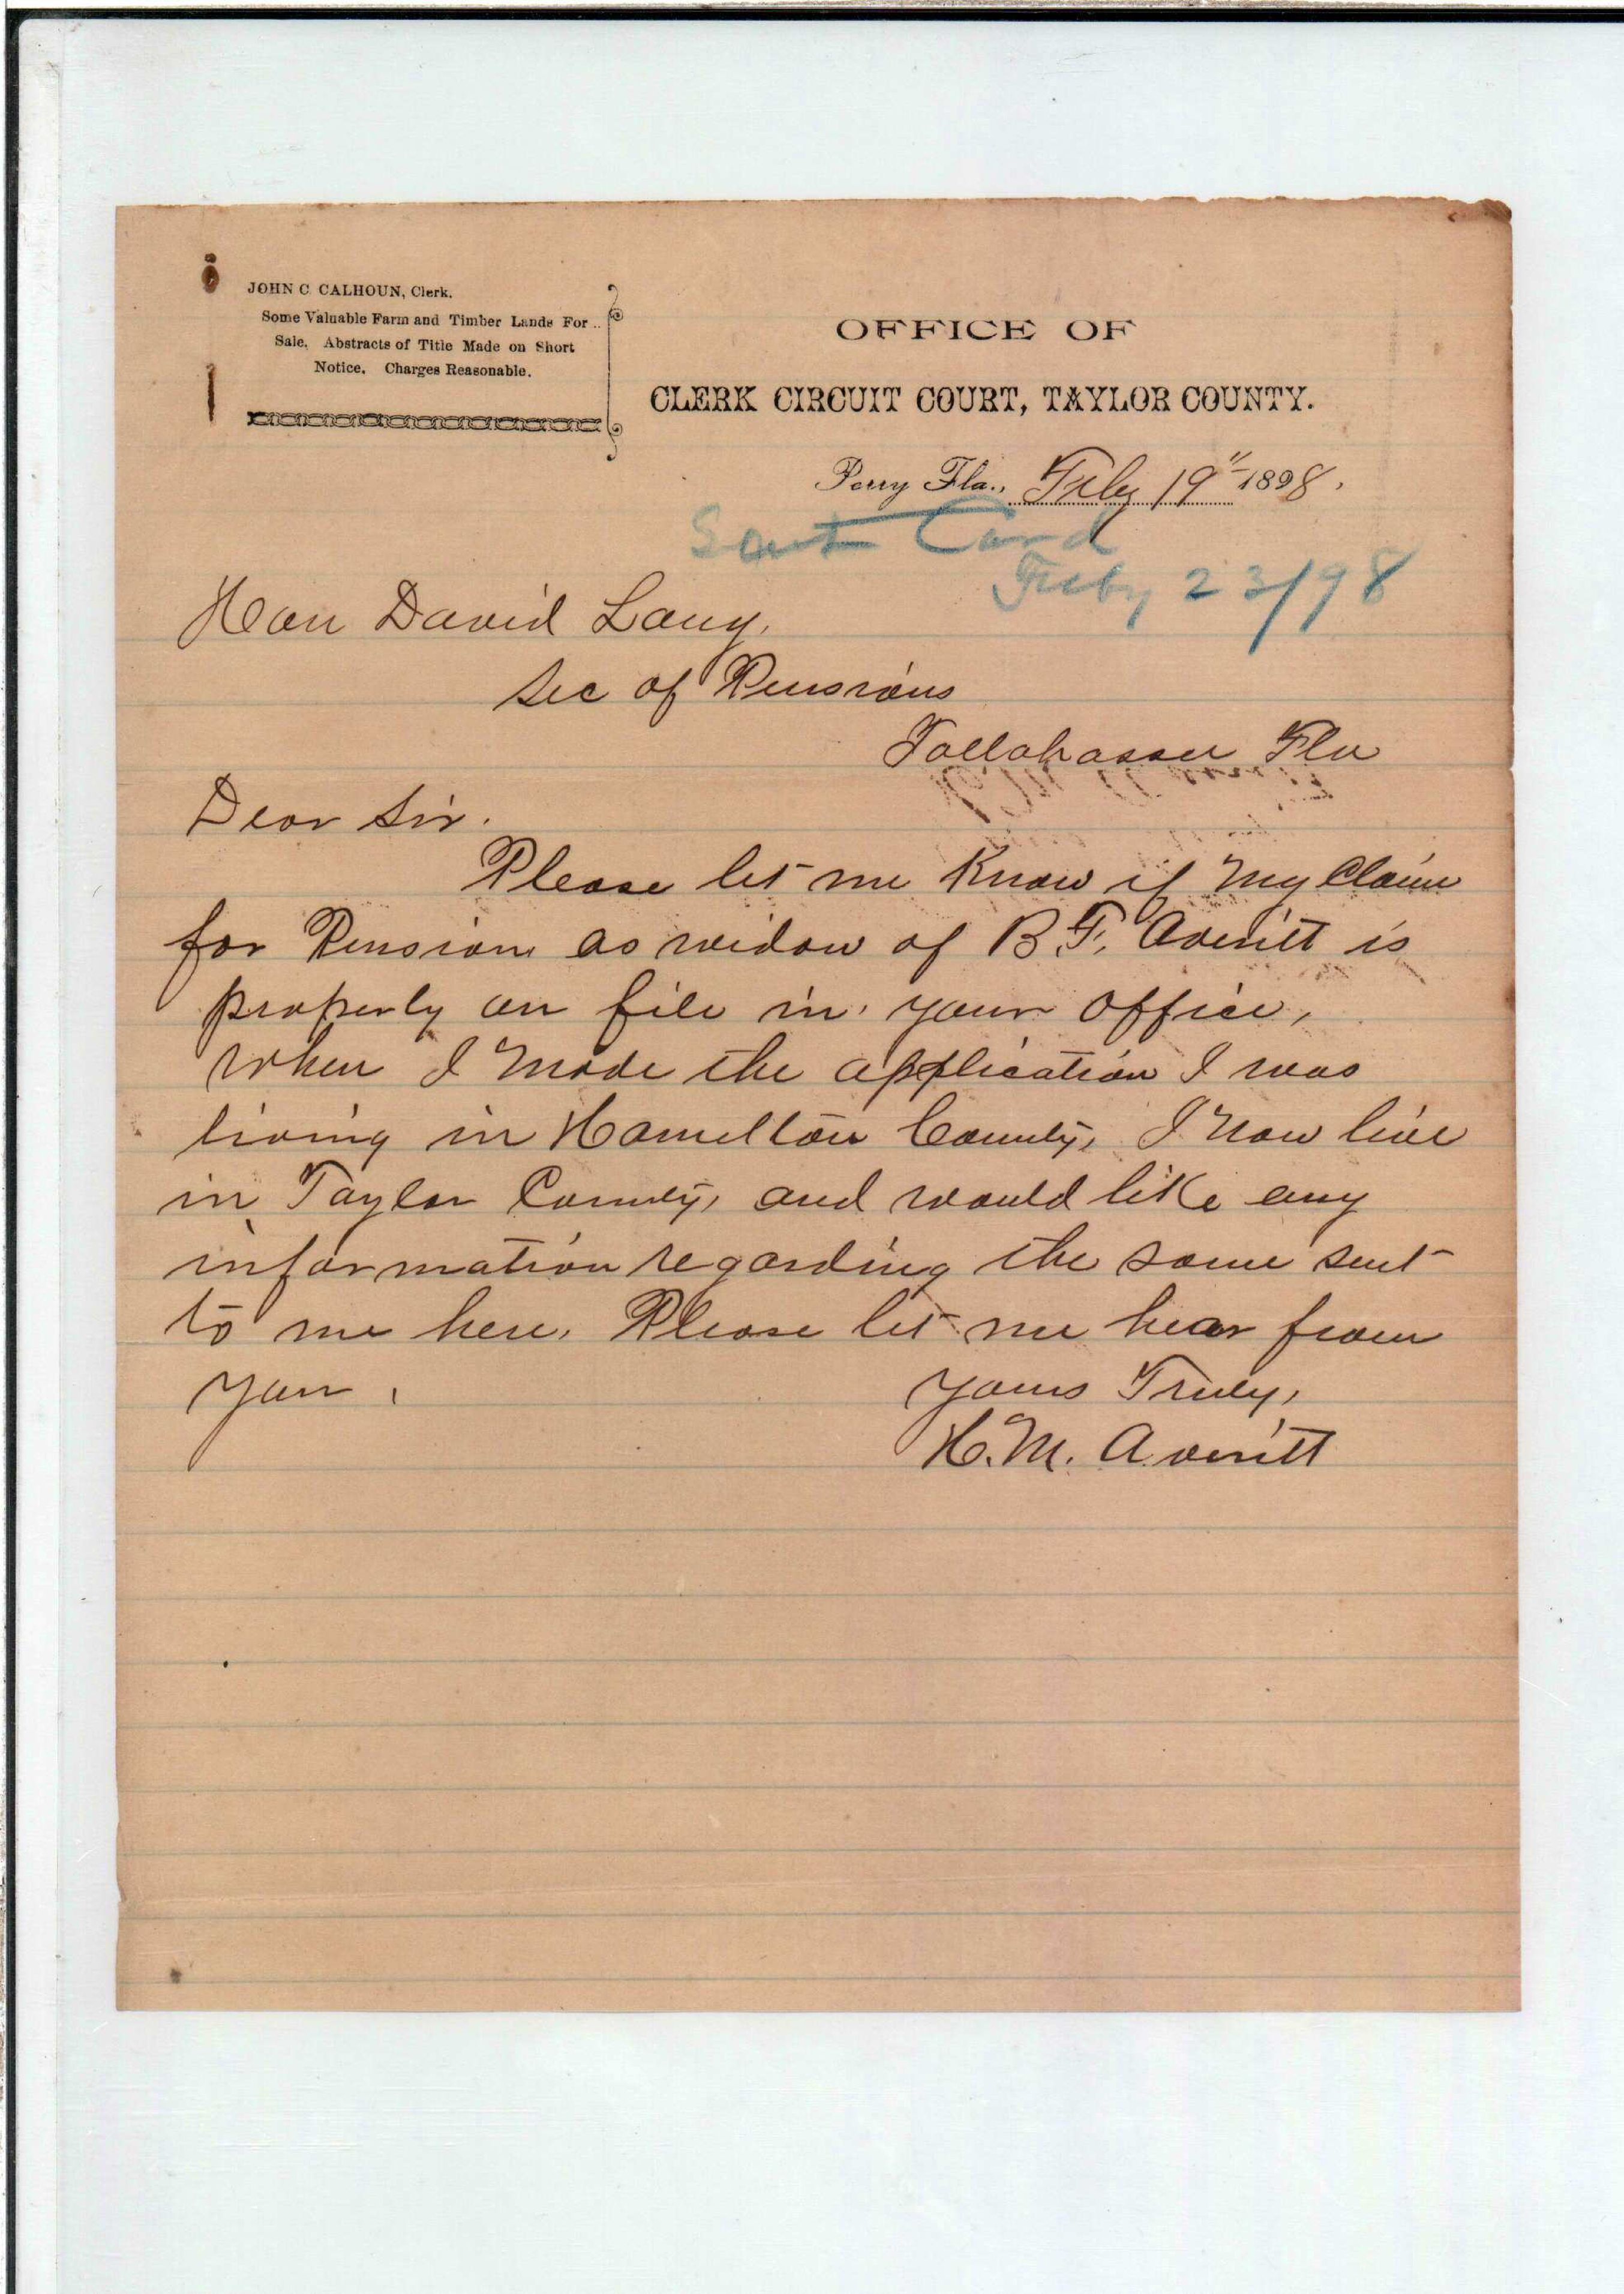 JOHN C. CALHOUN, Clerk.
Some Valuable Farm and Timber Lands For ..
Sale. Abstracts of Title Made on Short
Notice. Charges Reasonable.
OFFICE OF
CLERK CIRCUIT COURT, TAYLOR COUNTY.
Perry Fla., Feby 19" 1898.
Sent Card
Feby 23/98
Hon David Lang,
Sec of Pensions
Tallahassee Fla
Dear Sir.
Please let me Know if My Claim
for Pension as widow of B. F. Averitt is
properly on file in your office,
When I Made the application I was
living in Hamelton County, I Now live
in Taylor County, and would like any
information regarding the same sent
to me here. Please let me hear from
you.
Yours Truly,
H. M. Averitt